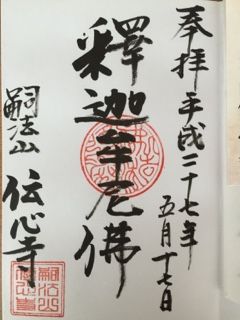 奉拝 平成二十七年
五月十七日
釋迦牟尼佛
嗣法山 伝心寺